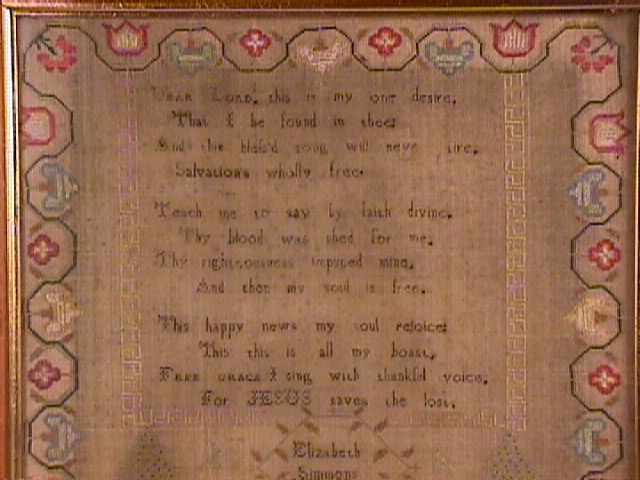 Dear Lord, this is my one desire,
That I be found in thee:
And the bless'd song will neve tire,
Salvation's wholly free.
Teach me to say by faith divine,
Thy blood was shed for me,
Thy righteousness imputed mine,
And then my soul is free.
This happy news my soul rejoice:
This this is all my boast,
Free grace I sing with thankful voice,
For JESUS saves the lost.
Elizabeth
Simmons